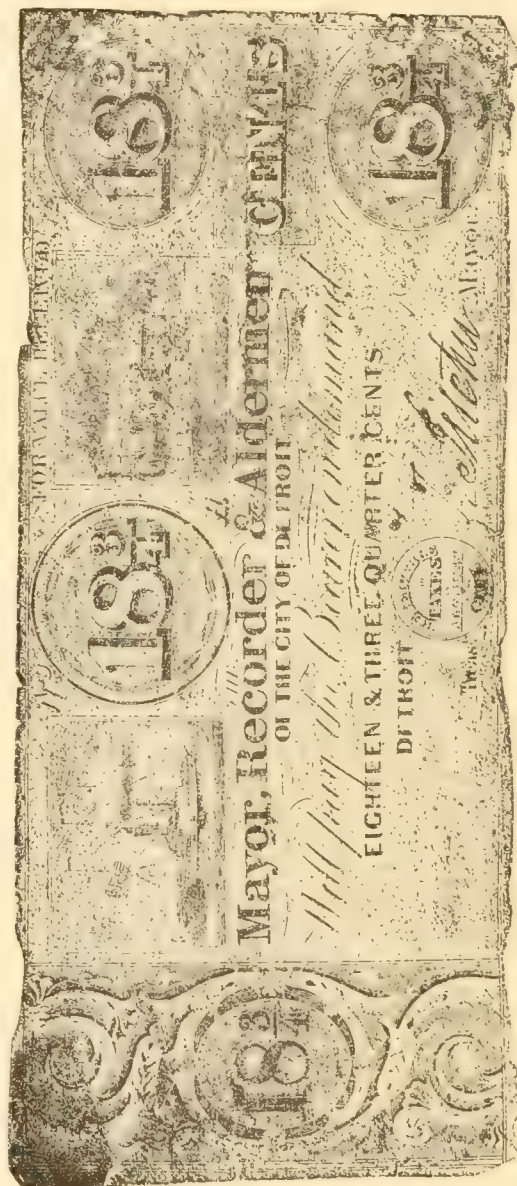 FOR VALUE RECEIVED
18 3/4
18 3/4
18 3/4
18 3/4
Mayor, Recorder & Aldermen
CENTS
OF THE CITY OF DETROIT
Will pay the Bearer on demand
EIGHTEEN & THREE QUARTER CENTS
DETROIT
TAXES
MAYOR